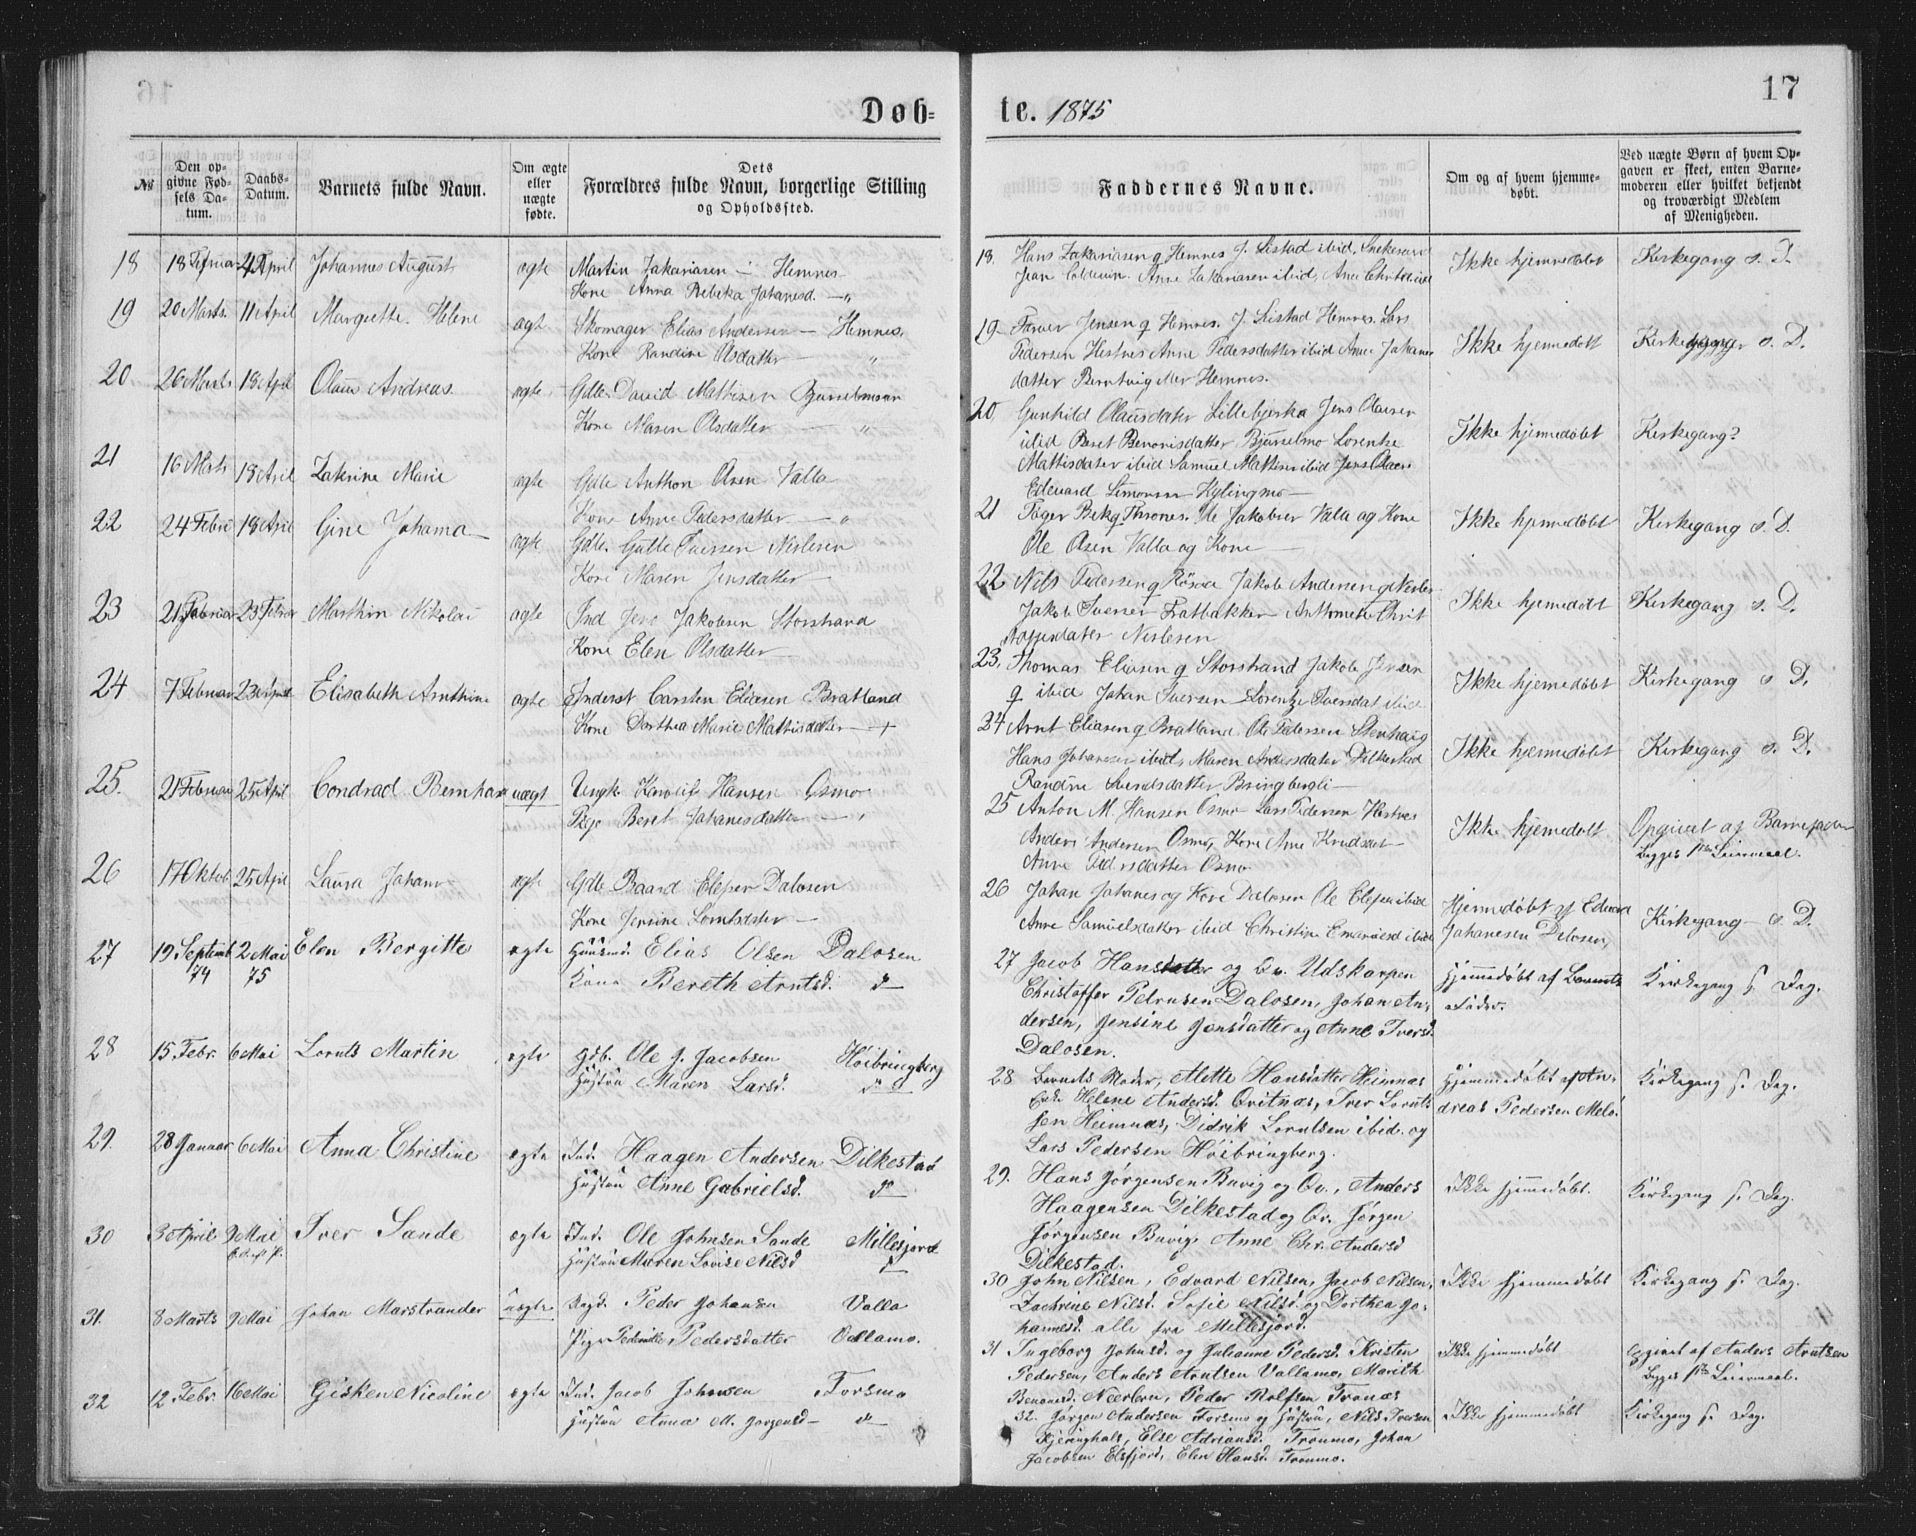 17
Døb=
te. 1875
№
Den op-
givne Fød-
sels Da-
tum.
Daabs-
Datum.
Barnets fulde Navn.
Om ægte
eller
uægte
fødte.
Dets
Forældres fulde Navn, borgerlige Stilling
og Opholdssted.
Faddernes Navne.
Om og af hvem hjemme-
døbt.
Ved uægte Børn af hvem Op-
gaven er skeet, enten Barne-
moderen eller hvilket bekjendt
og troværdigt Medlem
af Menigheden.
18 18 Februar 4 April Johannes August ægte Martin Zakariasen Hemnes
Kone Anna Rebeka Johanesd. —"
18. Hans Zakariasen g Hemnes J. Sistad ibid.
Anne Zakariasen ibid,
Ikke hjemmedøbt Kirkegang s. D.
19 20 Marts. 11 April Margrette Helene ægte Skomager Elias Andersen — Hemnes.
Kone Randine Olsdatter — "
19 Jensen g Hemnes. J. Sistad Hemnes. Lars
Pedersen Hestnes Anne Pedersdatter ibid Anne Johanes
datter Hemnes.
Ikke hjemmedøbt s. D.
20 26 Marts 18 April Olaus Andreas ægte Gdb. David Mathisen
Kone Maren Olsdatter — "
20, Gunhild Olausdater Lillebjerka Jens Olausen
ibid Beret Benonisdatter Bjurselmo Lorentze
Mattisdater ibid Samuel Mattisen ibid Jens Olaus.
Edevard Simonsen Kylingmo —
Ikke hjemmedøbt Kirkegang?
21 16 Marts 18 April Zakrine Marie ægte Gdb Anthon Olsen Valla
Kone Anne Pedersdatter — "
21 Ole Jakobsen Valla og Kone
Ole Olsen Valla og Kone —
Ikke hjemmedøbt Kirkegang s. D.
22 24 Febru 18 April Gine Johanna ægte Gdb. Iversen Nerleren
Kone Maren Jensdatter —
22 Nils Pedersen g Røsvia Jakob Andersen g Nerler
Jakob Iversen
datter Nerleren
Ikke hjemmedøbt Kirkegang s. D.
23 21 Februar 23 Marthin Nikolai ægte Ind Jens Jakobsen Storstrand
Kone Elen Olsdatter —
23. Thomas Eliasen g Storstrand Jakob Jensen
g ibid Johan Iversen Lorentze Iversdat ibid
Ikke hjemmedøbt Kirkegang s D.
24 7 Februar 23 April Elisabeth Arnthine ægte Inderst Carsten Eliasen Bratland
Kone Dorthea Marie Mattisdatter — +
24 Arnt Eliasen g Bratland Ole Pedersen Stenhaug
Hans Johanesen ibid, Maren Andersdater Dilkestad
Randine Bringbergli —
Ikke hjemmedøbt Kirkegang s. D.
25. 21 Februar 25 April Condrad Bernhard uægt Ungk. Hansen Osmo
Pige Beret Johanesdatter — "
25 Anton M. Hansen Osmo Lars Pedersen Hestnes
Anders Andersen Osmo, Kone Ane Knudsdat
Anne Pedersdatter Osmo
Ikke hjemmedøbt Opgivet af Barnefader
Begges 1ste Leiermaal.
26 17 Oktob 25 April Laura Johan ægte Gdb Baard Dalosen
Kone Jensine —
26 Johan Johanes og Kone Dalosen Ole ibid
Anne Samuelsdatter ibid Christine ibid
Hjemmedøbt af Edvard
Johanesen Dalosen, Kirkegang s D.
27 19 Septemb 2 Mai Elen Bergitte ægte Huusmd. Elias Olsen Dalosen
74 75 Kone Bereth Arntsd. d°
27 Jacob Hansen og Qv. Udskarpen
Christoffer Petrusen Dalosen, Johan An-
dersen, Jensine Jonsdatter og Anne Iversd.
Dalosen.
Hjemmedøbt af Barnets
Fader. Kirkegang s. Dag.
28 15 Febr. 6 Mai Lornts Martin ægte Gdb. Ole J. Jacobsen Høibringberg
Hustru Maren Larsd. d°
28 Barnets Moder, Mette Hansdatter Heimnes
Enke Helene Andersd. Qvitnæs, Iver Lornt-
sen Heimnæs, Didrik Lorntsen ibid. og
Lars Pedersen Høibringberg.
Hjemmedøbt af An-
dreas Pedersen Melø. Kirkegang s. Dag.
29. 28 Januar 6 Mai Anna Christine ægte Ind. Haagen Andersen Dilkestad
Hustru Anne Gabrielsd. d°
29. Hans Jørgensen Buvig og Qv., Anders
Haagensen Dilkestad og Qv. Jørgen
Jørgensen Buvig, Anne Chr. Andersd
Dilkestad.
Ikke hjemmedøbt. Kirkegang s. Dag.
30 3 April 9 Mai Iver Sande ægte Ind. Ole Johnsen Sande Millesjord
Hustru Maren Lovise Nilsd d°
30 John Nilsen, Edvard Nilsen, Jacob Nilsen,
Zachrine Nilsd. Sofie Nilsd. og Dorthea Jo-
hannesd. alle fra Millesjord.
Ikke hjemmedøbt Kirkegang s. Dag.
31. 8 Marts 9 Mai Johan Marstrander uægte Ungk. Peder Johansen Valla
Pige Pedersdatter Vallamo.
31 Ingeborg Johnsd. og Julianne Pedersd. Kristen
Pedersen, Anders Arntsen Vallamo, Marith
Benonisd. Neerlern, Peder Rolfsen Tronæs
Ikke hjemmedøbt Opgivet af Anders Arntsen
Begges 1ste Leiermaal.
32 12 Febr. 16 Mai Gisken Nicoline ægte Ind. Jacob Johnsen Forsmo
Hustru Anna M. Jørgensd — d°
32. Jørgen Andersen Forsmo og Hustru, Nils Iversen
Kjeringhals, Else Adriansd. Tronmo, Johan
Jacobsen Elsfjord, Elen Hansd. Tronmo.
Ikke hjemmedøbt Kirkegang s. Dag.